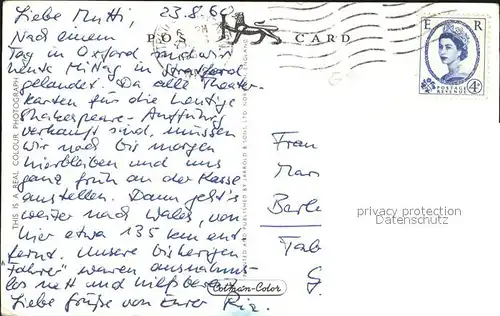 Liebe Mutti, 23.8.60
POS CARD
E R
POSTAGE
REVENUE
4D
Nach einem
Tag in Oxford sind wir
heute Mittag in Stratford
gelandet. Da alle Theater-
karten für die heutige
Shakespeare-Aufführung
verkauft sind, müssen
wir noch bis morgen
hierbleiben und uns
ganz früh an der Kasse
anstellen. Dann geht's
weiter nach Wales, von
hier etwa 135 km ent
fernt. Unsere bisherigen
"Fahrer" waren ausnahms-
los nett und hilfsbereit.
Liebe Grüße von Eurer
Frau
Mar
Berli
Fab
THIS IS A REAL COLOUR PHOTOGRAPH
PUBLISHED BY JARROLD & SONS LTD. NORWICH, ENGLAND
Colman-Color
privacy protection
Datenschutz